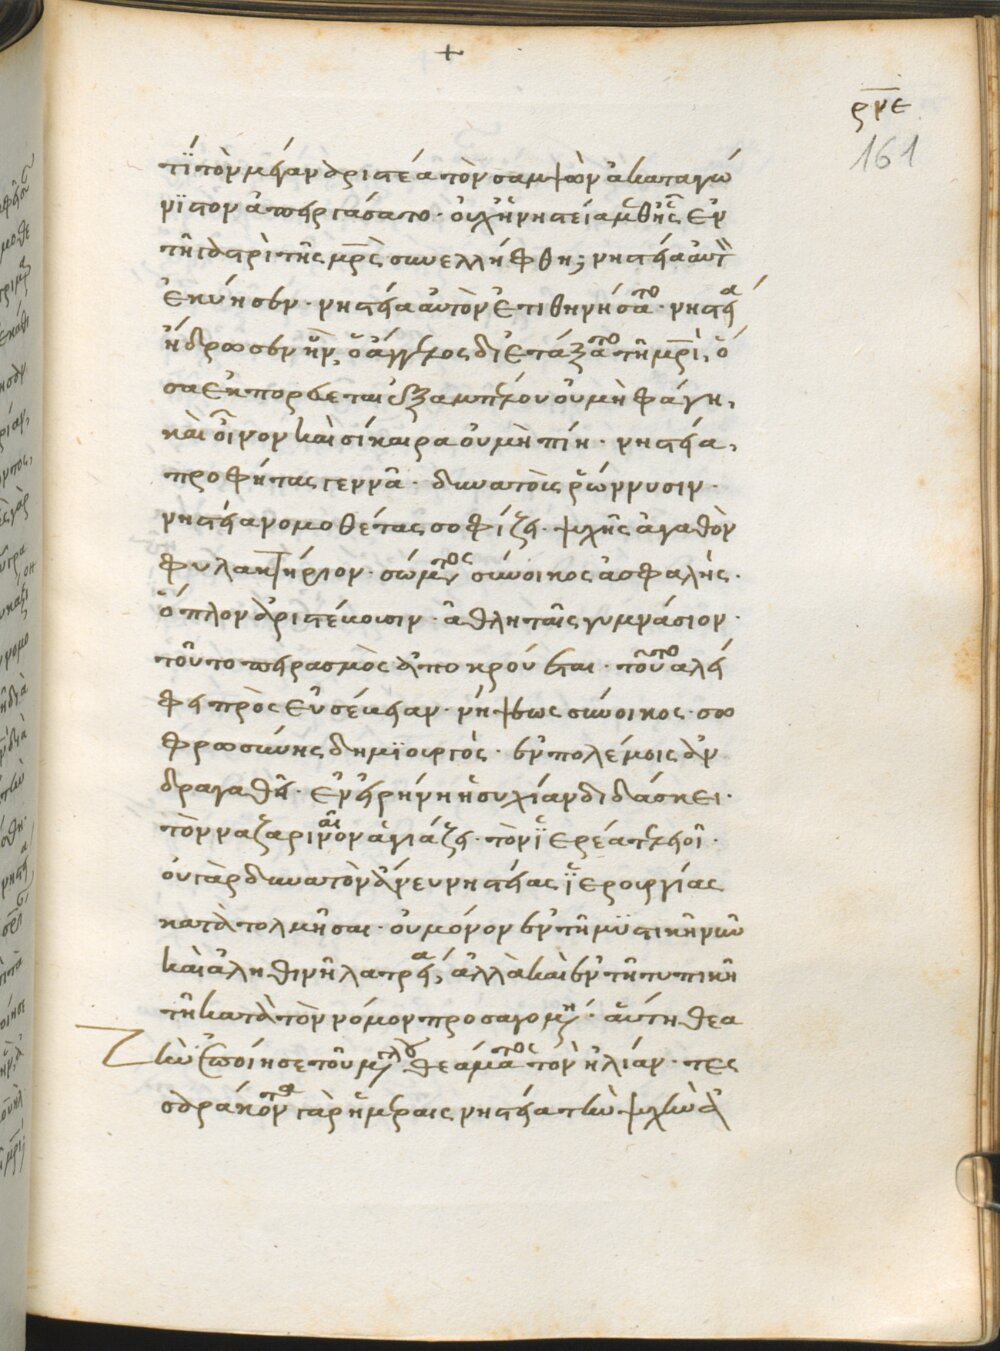 +
ρνε
161
τί τὸν μέγαν ἀριστέα τὸν σαμψὼν ἀκαταγώ
νιστον ἀπειργάσατο· οὐχ ἡ νηστεία μεθ' ἧς ἐν
τῆ γαστρὶ τῆς μρ̅ς συνελλήφθη; νηστεία αὐτὸν
ἐκύησεν· νηστεία αὐτὸν ἐτιθηνήσατο· νηστεία
ἤδρωσεν ἣν ὁ ἄγγελος διετάξατο τῆ μρ̅ὶ, ὅ
σα ἐκπορεύεται ἐξ ἀμπέλου οὐ μὴ φάγη,
καὶ οἶνον καὶ σίκαιρα οὐ μὴ πίη· νηστεία,
προφήτας γεννᾶ· δυνατοὺς ῥώννυσιν·
νηστεία νομοθέτας σοφίζει· ψυχῆς ἀγαθὸν
φυλακτήριον· σώματος σύνοικος ἀσφαλής·
ὅπλον ἀριστεύουσιν· ἀθληταῖς γυμνάσιον·
τοῦτο πειρασμοὺς ἀποκρούεται· τοῦτο ἀλεί
φει πρὸς εὐσέβειαν· νήψεως σύνοικος· σω
φρωσύνης δημϊουργός· ἐν πολέμοις ἀν
δραγαθεῖ· ἐν εἰρήνη ἡσυχίαν διδάσκει·
τὸν ναζαριναῖον ἁγιάζει· τὸν ἱερέα τελειοῖ·
οὐ γὰρ δυνατὸν ἄνευ νηστείας ἱερουργίας
κατατολμῆσαι· οὐ μόνον ἐν τῆ μυστικῆ νῦν
καὶ ἀληθινῆ λατρεία, ἀλλὰ καὶ ἐν τῆ τυπικῆ
τῆ κατὰ τὸν νόμον προσαγομένη· αὕτη θεα
τὴν ἐποίησε τοῦ μεγάλου θεάματος τὸν ἠλίαν· τες
σαράκοντα γὰρ ἡμέραις νηστεία τὴν ψυχὴν ἀ